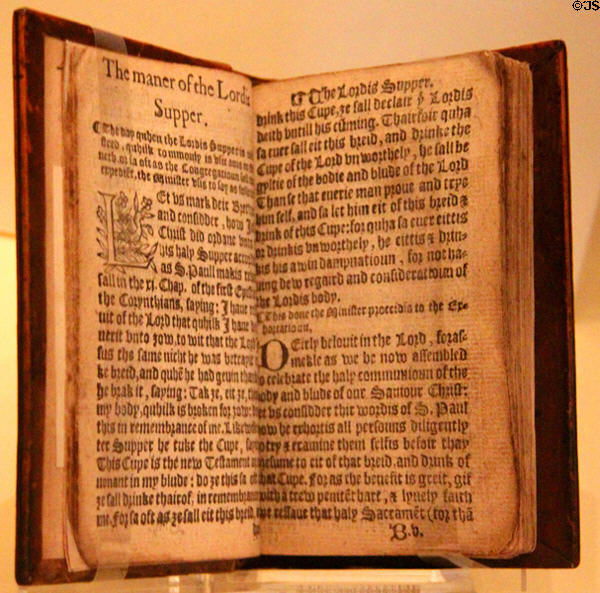 ©JS
The maner of the Lordis
Supper.
¶ The day quhen the Lordis Supper is
quhilk commounly is vsit anis in
neth, or sa oft as the Congregatioun sall
expedient, the Minister vsis to say as
LEt vs mark deir
and considder, how
Christ did ordane
his haly Supper
as S. Paull makis
sall in the xi. Chap. of the first
the Corynthians, saying: I haue
uit of the Lord that quhilk I haue
uerit vnto zow, to wit that the
sus the same nicht he was
ke breid, and quhē he had geuin
he brak it, saying: Tak ze, eit ze,
my body, quhilk is broken for zow:
this in remembrance of me. Likewise
ter Supper he tuke the Cupe,
This Cupe is the new Testament
uenant in my blude: do ze this sa
ze sall drinke thairof, in
me. For sa oft as ze sall eit this breid,
¶ The Lordis Supper.
drink this Cupe, ze sall declair ẏ Lordis
deith vntill his cūming. Thairfoir quha
sa euer sall eit this breid, and drinke the
Cupe of the Lord vnworthely, he sall be
gyltie of the bodie and blude of the Lord
Than se that euerie man proue and trye
him self, and sa let him eit of this breid &
drink of this Cupe: for quha sa euer eittis
or drinkis vnworthely, he eittis & drin-
kis his awin dampnatioun, for not ha-
uing dew regaird and consideratioun of
the Lordis body.
¶ This done the Minister proceidis to the Ex-
hortatioun.
DEirly belouit in the Lord, foras-
mekle as we be now assembled
to celebrate the haly communioun of the
body and blude of our Sauiour Christ:
let vs considder the wordis of S. Paul
how he exhortis all persouns diligently
to try & examine them selfis befoir thay
presume to eit of that breid. and drink of
that Cupe. For as the benefit is greit, gif
with a trew penitēt hart, & lyuely faith
we ressaue that haly Sacramēt (for thā
B.v.